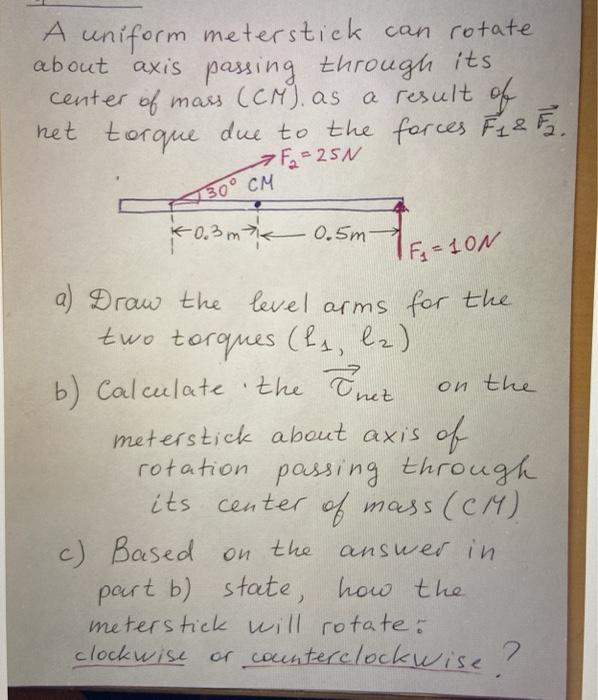 A uniform meterstick can rotate
about axis passing through its
center of mass (CM). as a result of
net torque due to the forces F⃗₁ & F⃗₂.
F₂ = 25N
30° CM
0.3m 0.5m
F₁ = 10N
a) Draw the level arms for the
two torques (ℓ₁, ℓ₂)
b) Calculate the τ⃗net on the
meterstick about axis of
rotation passing through
its center of mass (CM)
c) Based on the answer in
part b) state, how the
meterstick will rotate:
clockwise or counterclockwise?